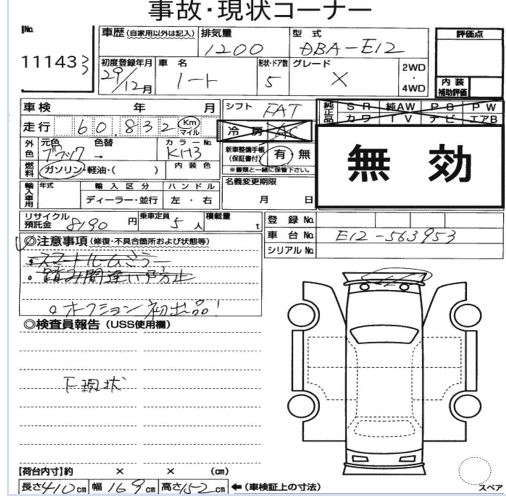 事故・現状コーナー
No. 11143
車歴(自家用以外は記入) 排気量 1200 型式 DBA-E12 評価点
初度登録年月 29/12月 車名 ノート 形状・ドア数 5 グレード X 2WD・4WD 内装補助評価
車検 年 月 シフト FAT 純正品 SR 純AW PS PW
走行 60,832 Km マイル 冷房 AC カワ TV ナビ エアB
外色 元色 ブラック 色替 カラーNo. KH3 新車整備手帳(保証書付) 有・無 無効
燃料 ガソリン・軽油・( ) 内装色 ※書類と一緒に保管して下さい。
輸入車用 年式 輸入区分 ハンドル 名義変更期限
ディーラー・並行 左・右 月 日
リサイクル預託金 8190円 乗車定員 5人 積載量 t 登録No.
車台No. E12-563953
シリアルNo.
◎注意事項(修復・不具合箇所および状態等)
スマートルームミラー
踏み間違い防止
オークション初出品!
◎検査員報告(USS使用欄)
下現状
【荷台内寸】約 × × (cm)
長さ410cm 幅169cm 高さ152cm ←(車検証上の寸法) スペア